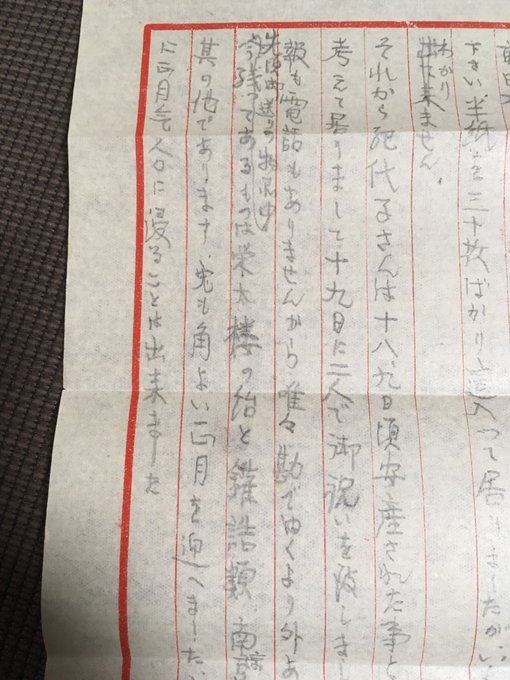 下さい、半紙は三十枚ばかり這入って居りましたが、い
わかり
来ません。
それから紀代子さんは十八、九日頃安産された事と
考えて居りまして十九日に二人で御祝いを致しまし
報も電話もありませんから唯々勘でゆくより外あ
御送りの物品中
今残てあるものは栄太楼の飴と雑誌類、南京
其の他であります、兎も角よい正月を迎へました
に正月気分に浸ることは出来ました